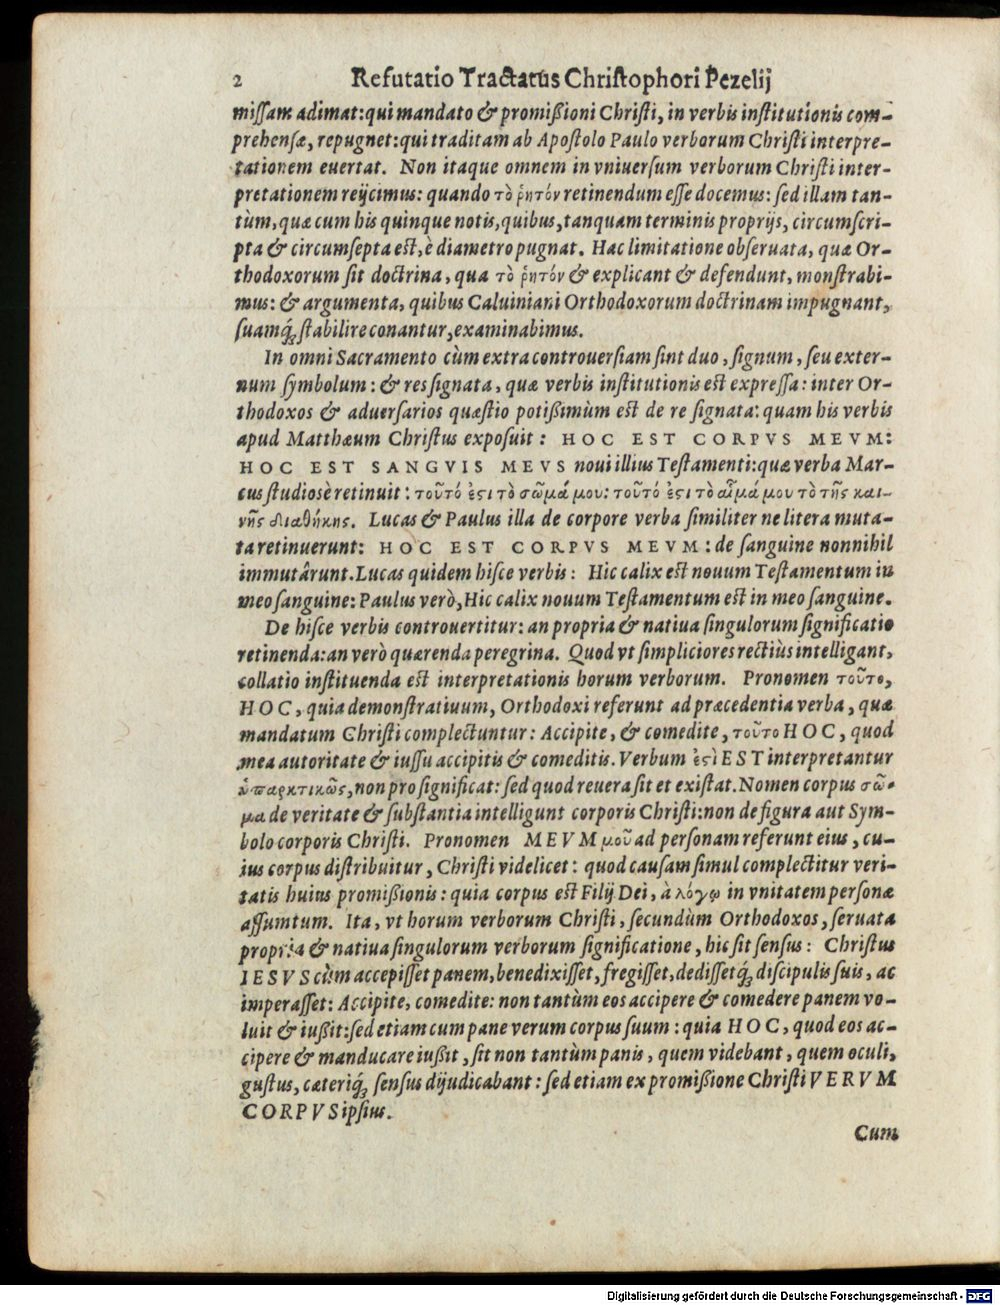 2 Refutatio Tractatus Christophori Pezelij
missam adimat: qui mandato & promißioni Christi, in verbis institutionis com-
prehensæ, repugnet: qui traditam ab Apostolo Paulo verborum Christi interpre-
tationem euertat. Non itaque omnem in vniuersum verborum Christi inter-
pretationem reijcimus: quando τὸ ῥητόν retinendum esse docemus: sed illam tan-
tùm, quæ cum his quinque notis, quibus, tanquam terminis proprijs, circumscri-
pta & circumsepta est, è diametro pugnat. Hac limitatione obseruata, quæ Or-
thodoxorum sit doctrina, qua τὸ ῥητόν & explicant & defendunt, monstrabi-
mus: & argumenta, quibus Caluiniani Orthodoxorum doctrinam impugnant,
suamq́; stabilire conantur, examinabimus.
In omni Sacramento cùm extra controuersiam sint duo, signum, seu exter-
num symbolum: & res signata, quæ verbis institutionis est expressa: inter Or-
thodoxos & aduersarios quæstio potißimùm est de re signata: quam his verbis
apud Matthæum Christus exposuit: HOC EST CORPVS MEVM:
HOC EST SANGVIS MEVS noui illius Testamenti: quæ verba Mar-
cus studiosè retinuit: τοῦτό ἐςι τὸ σῶμά μου: τοῦτό ἐςι τὸ αἷμά μου τὸ τῆς και-
νῆς διαθήκης. Lucas & Paulus illa de corpore verba similiter ne litera muta-
ta retinuerunt: HOC EST CORPVS MEVM: de sanguine nonnihil
immutârunt. Lucas quidem hisce verbis: Hic calix est nouum Testamentum in
meo sanguine: Paulus verò, Hic calix nouum Testamentum est in meo sanguine.
De hisce verbis controuertitur: an propria & natiua singulorum significatio
retinenda: an verò quærenda peregrina. Quod vt simpliciores rectiùs intelligant,
collatio instituenda est interpretationis horum verborum. Pronomen τοῦτο,
HOC, quia demonstratiuum, Orthodoxi referunt ad præcedentia verba, quæ
mandatum Christi complectuntur: Accipite, & comedite, τοῦτο HOC, quod
mea autoritate & iussu accipitis & comeditis. Verbum ἐςὶ EST interpretantur
ὑπαρκτικῶς, non pro significat: sed quod reuera sit et existat. Nomen corpus σῶ-
μα de veritate & substantia intelligunt corporis Christi: non de figura aut Sym-
bolo corporis Christi. Pronomen MEVM μοῦ ad personam referunt eius, cu-
ius corpus distribuitur, Christi videlicet: quod causam simul complectitur veri-
tatis huius promißionis: quia corpus est Filij Dei, à λόγῳ in vnitatem personæ
assumtum. Ita, vt horum verborum Christi, secundùm Orthodoxos, seruata
propria & natiua singulorum verborum significatione, hic sit sensus: Christus
IESVS cùm accepisset panem, benedixisset, fregisset, dedissetq́; discipulis suis, ac
imperasset: Accipite, comedite: non tantùm eos accipere & comedere panem vo-
luit & iußit: sed etiam cum pane verum corpus suum: quia HOC, quod eos ac-
cipere & manducare iußit, sit non tantùm panis, quem videbant, quem oculi,
gustus, cæteriq́; sensus dijudicabant: sed etiam ex promißione Christi VERVM
CORPVS ipsius.
Cum
Digitalisierung gefördert durch die Deutsche Forschungsgemeinschaft - DFG